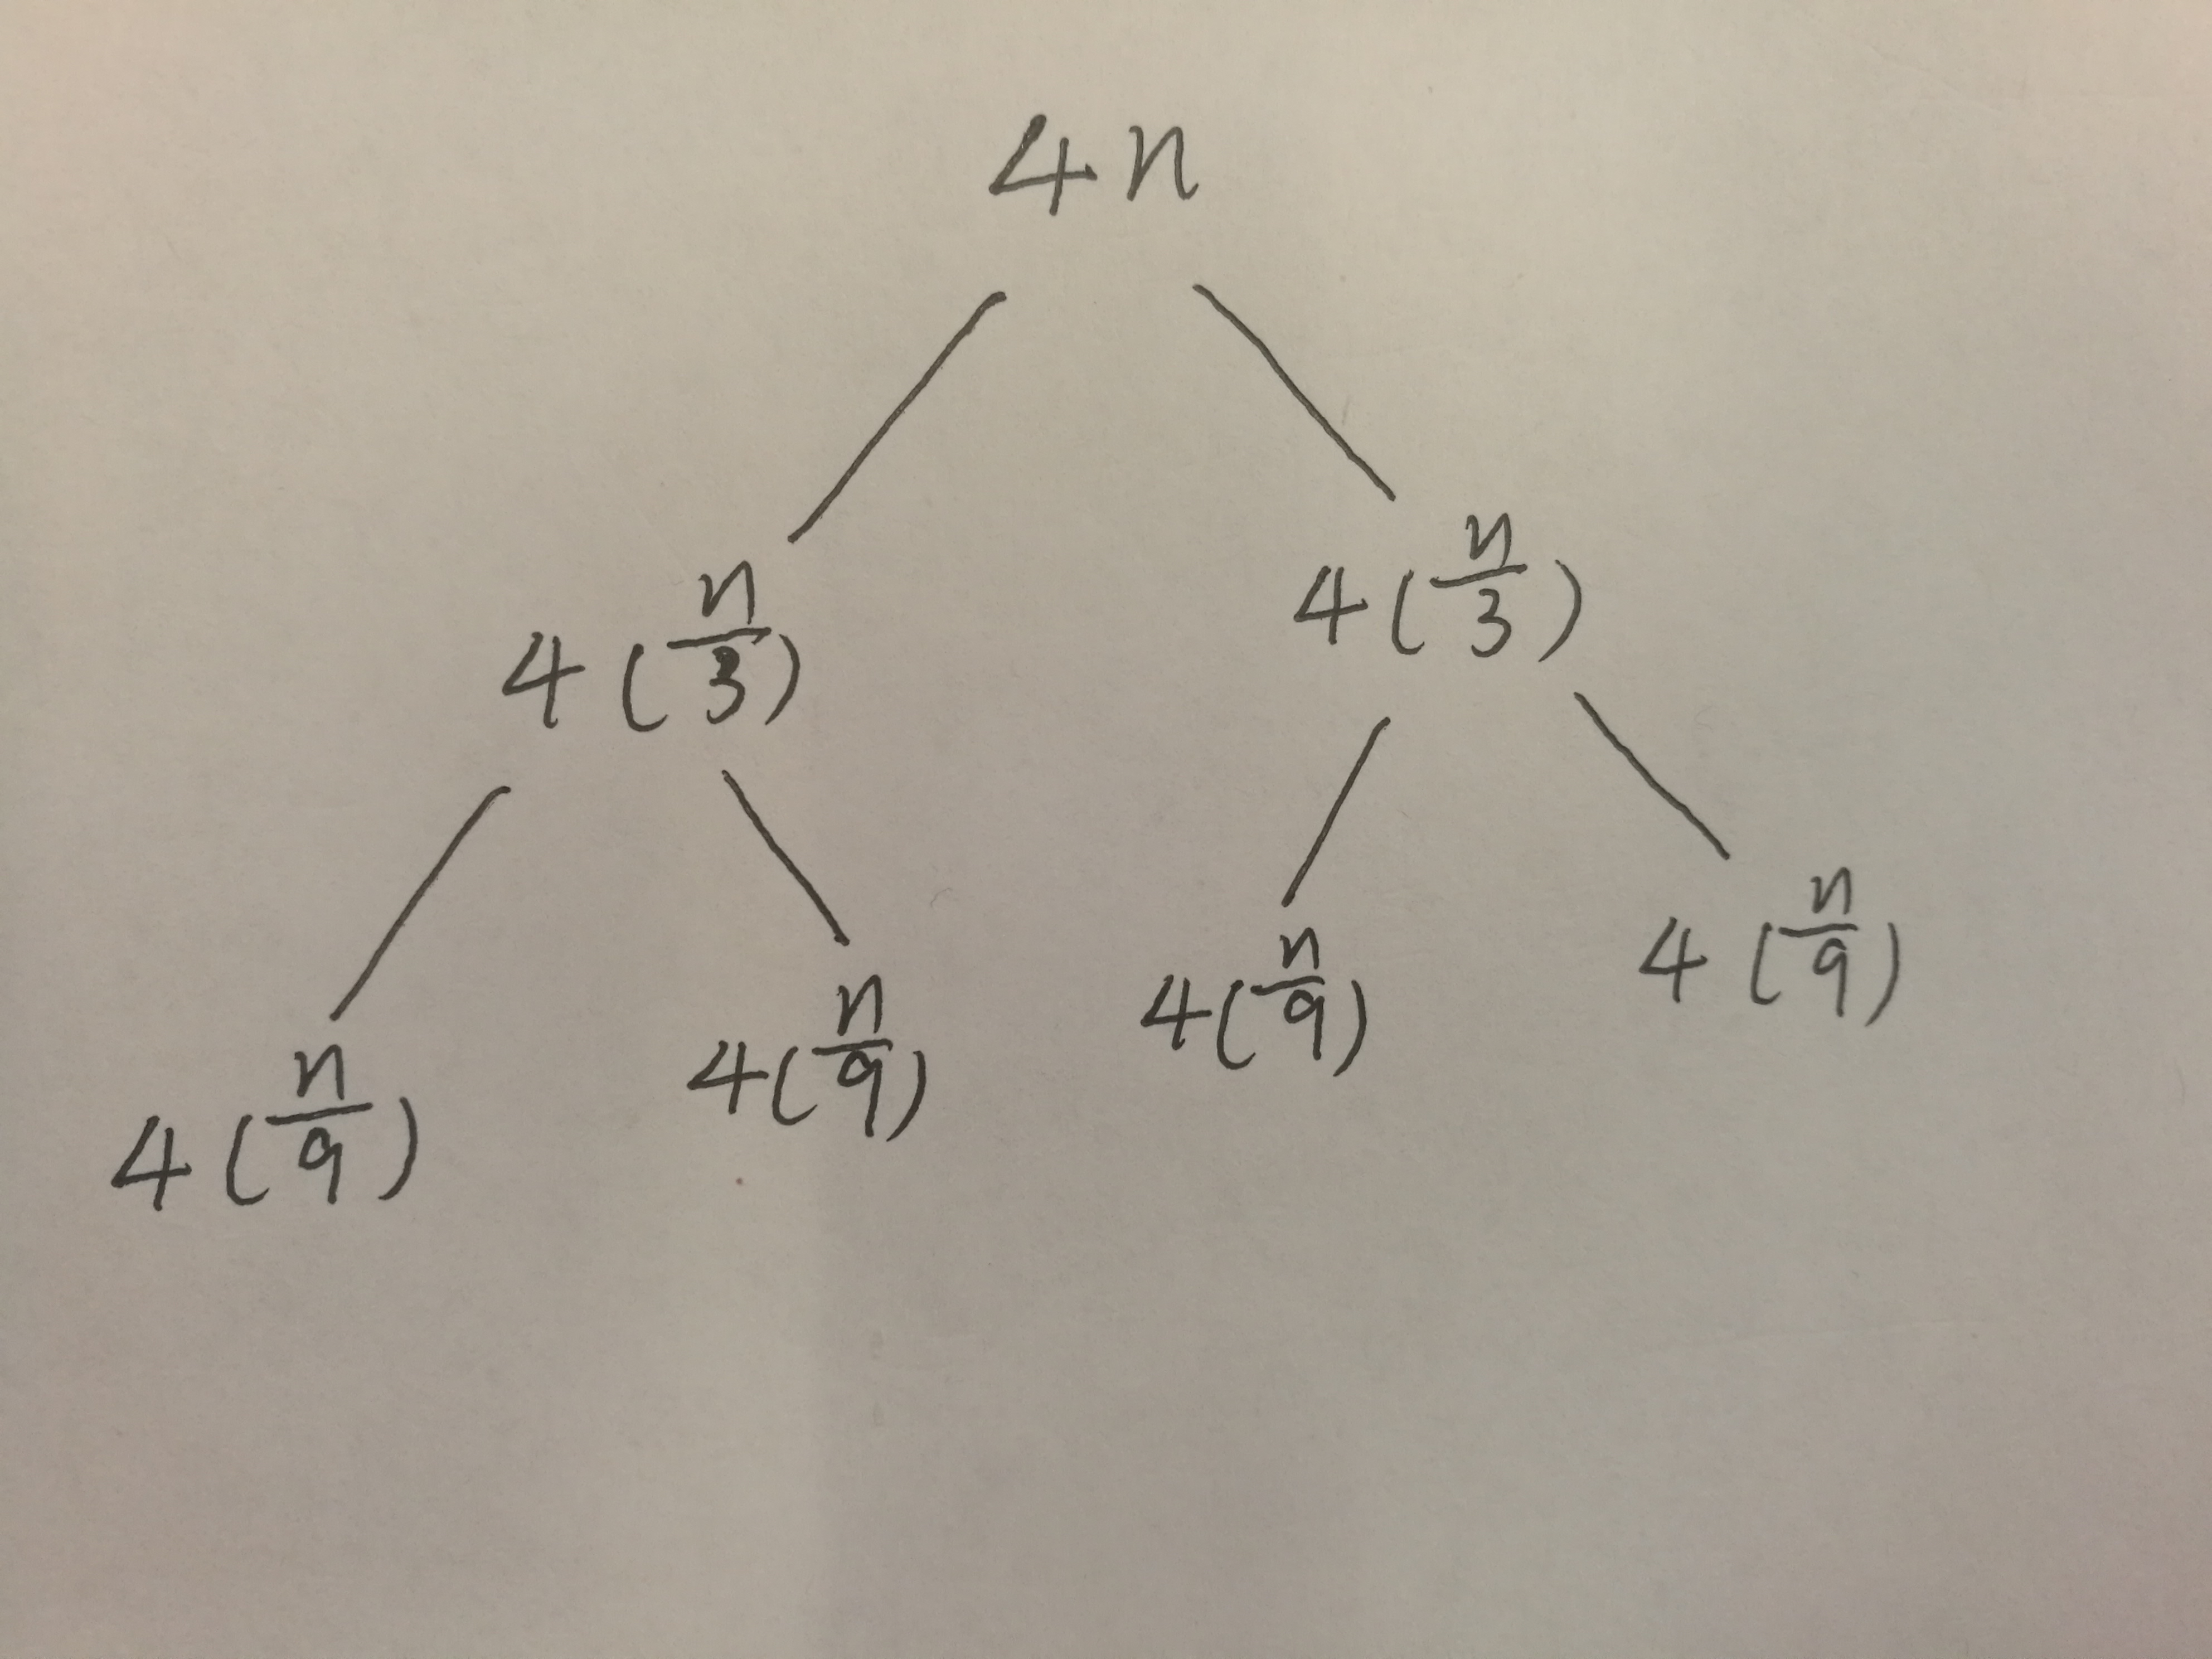 4n
4(n/3) 4(n/3)
4(n/9) 4(n/9) 4(n/9) 4(n/9)